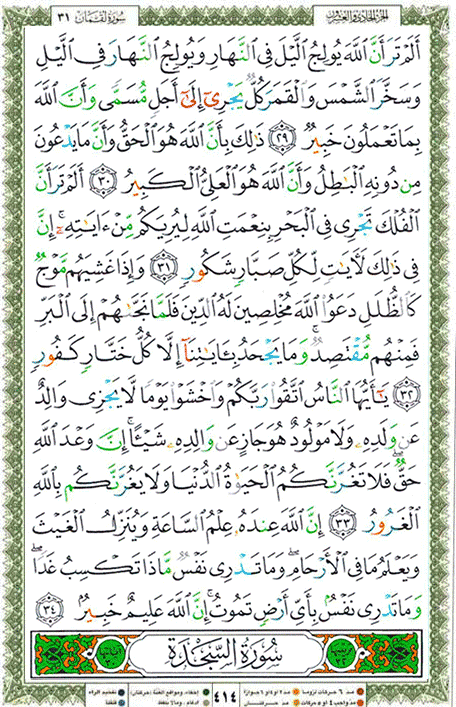 سُورَةُ لُقْمَان ٣١ الجزء الحادي والعشرون
أَلَمْ تَرَ أَنَّ ٱللَّهَ يُولِجُ ٱلَّيْلَ فِى ٱلنَّهَارِ وَيُولِجُ ٱلنَّهَارَ فِى ٱلَّيْلِ
وَسَخَّرَ ٱلشَّمْسَ وَٱلْقَمَرَ كُلٌّ يَجْرِىٓ إِلَىٰٓ أَجَلٍ مُّسَمًّى وَأَنَّ ٱللَّهَ
بِمَا تَعْمَلُونَ خَبِيرٌ ٢٩ ذَٰلِكَ بِأَنَّ ٱللَّهَ هُوَ ٱلْحَقُّ وَأَنَّ مَا يَدْعُونَ
مِن دُونِهِ ٱلْبَٰطِلُ وَأَنَّ ٱللَّهَ هُوَ ٱلْعَلِىُّ ٱلْكَبِيرُ ٣٠ أَلَمْ تَرَ أَنَّ
ٱلْفُلْكَ تَجْرِى فِى ٱلْبَحْرِ بِنِعْمَتِ ٱللَّهِ لِيُرِيَكُم مِّنْ ءَايَٰتِهِۦٓ ۚ إِنَّ
فِى ذَٰلِكَ لَءَايَٰتٍ لِّكُلِّ صَبَّارٍ شَكُورٍ ٣١ وَإِذَا غَشِيَهُم مَّوْجٌ
كَٱلظُّلَلِ دَعَوُا۟ ٱللَّهَ مُخْلِصِينَ لَهُ ٱلدِّينَ فَلَمَّا نَجَّىٰهُمْ إِلَى ٱلْبَرِّ
فَمِنْهُم مُّقْتَصِدٌ ۚ وَمَا يَجْحَدُ بِـَٔايَٰتِنَآ إِلَّا كُلُّ خَتَّارٍ كَفُورٍ
٣٢ يَٰٓأَيُّهَا ٱلنَّاسُ ٱتَّقُوا۟ رَبَّكُمْ وَٱخْشَوْا۟ يَوْمًا لَّا يَجْزِى وَالِدٌ
عَن وَلَدِهِۦ وَلَا مَوْلُودٌ هُوَ جَازٍ عَن وَالِدِهِۦ شَيْـًٔا ۚ إِنَّ وَعْدَ ٱللَّهِ
حَقٌّ ۖ فَلَا تَغُرَّنَّكُمُ ٱلْحَيَوٰةُ ٱلدُّنْيَا وَلَا يَغُرَّنَّكُم بِٱللَّهِ
ٱلْغَرُورُ ٣٣ إِنَّ ٱللَّهَ عِندَهُۥ عِلْمُ ٱلسَّاعَةِ وَيُنَزِّلُ ٱلْغَيْثَ
وَيَعْلَمُ مَا فِى ٱلْأَرْحَامِ ۖ وَمَا تَدْرِى نَفْسٌ مَّاذَا تَكْسِبُ غَدًا ۖ
وَمَا تَدْرِى نَفْسٌۢ بِأَىِّ أَرْضٍ تَمُوتُ ۚ إِنَّ ٱللَّهَ عَلِيمٌ خَبِيرٌۢ ٣٤
سُورَةُ السَّجْدَةِ
٤١٤